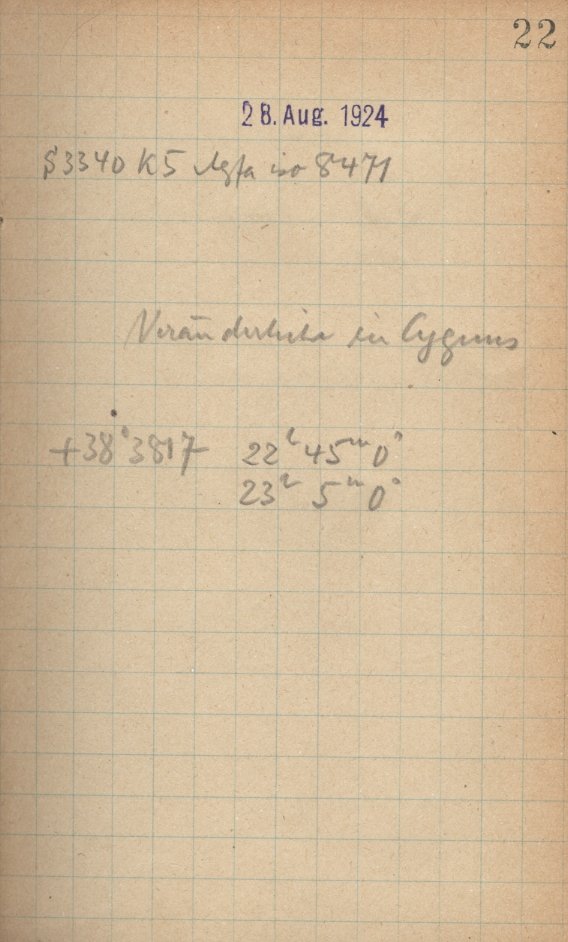 22
28. Aug. 1924
S3340 K5 Agfa iso 8471
Veränderliche in Cygnus
+38°3817 22ʰ 45ᵐ 0ˢ
23ʰ 5ᵐ 0ˢ